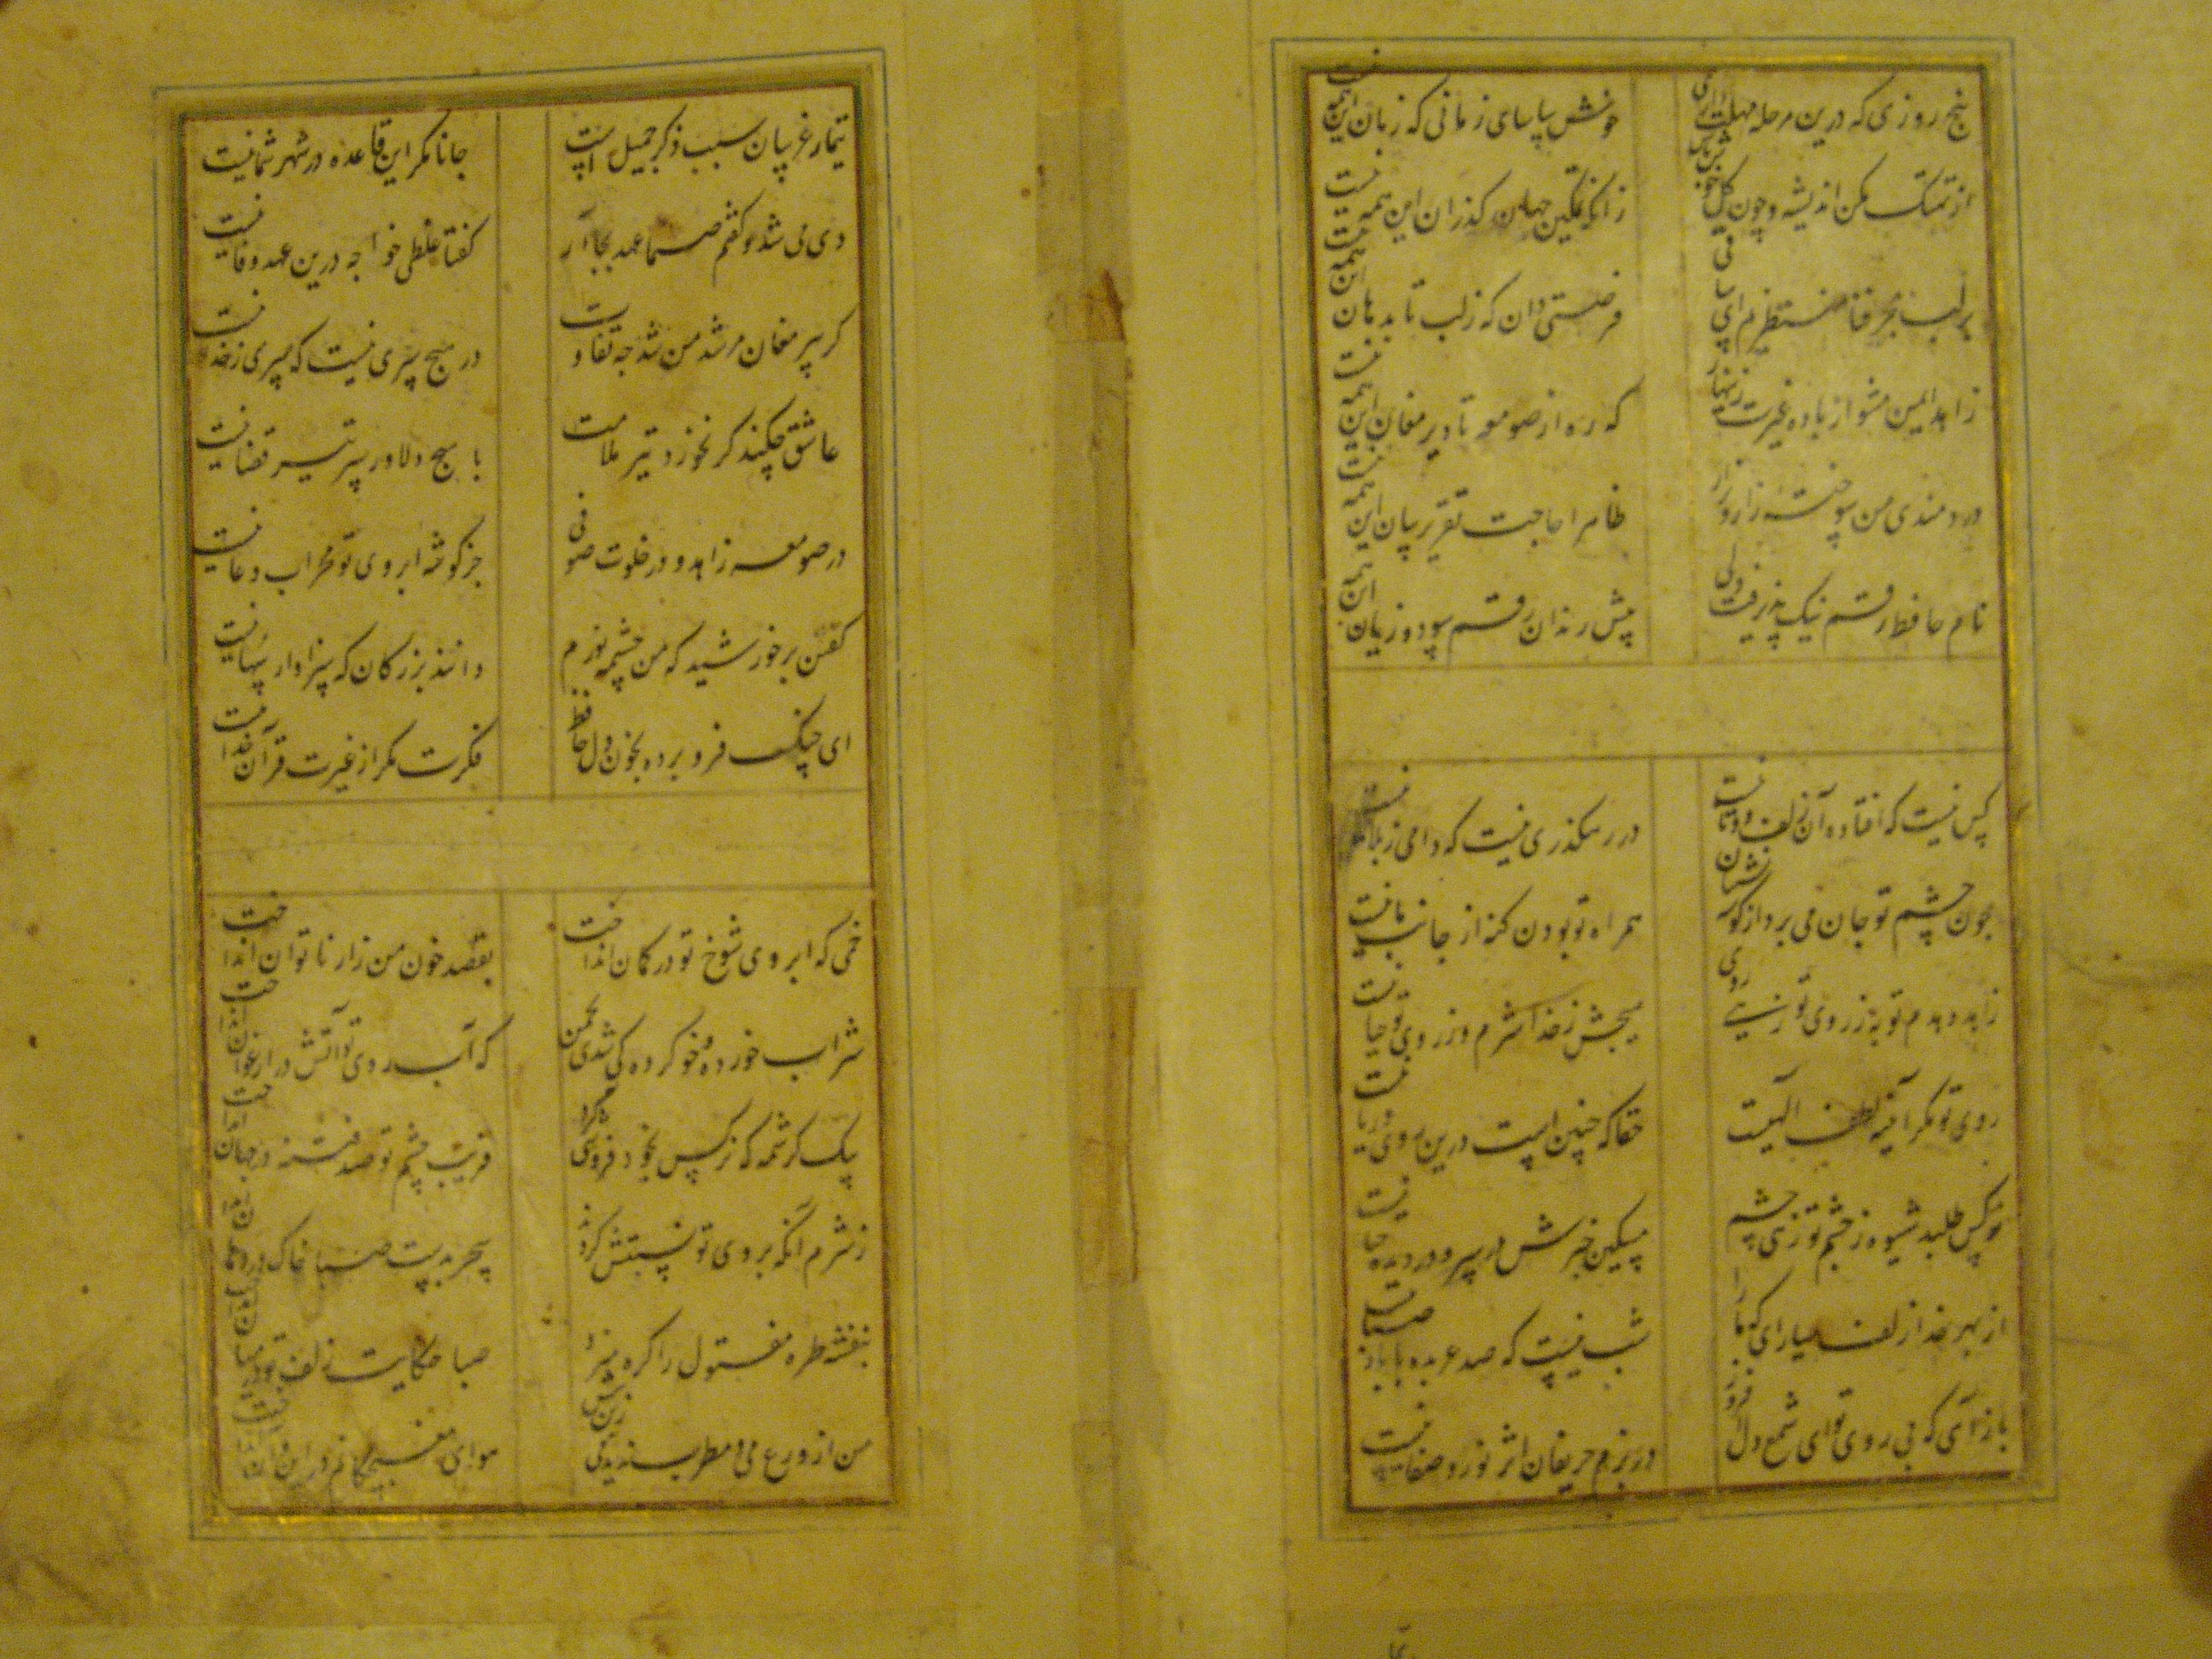 پنج روزی که درین مرحله مهلت داری خوش بیاسای زمانی که زمان این همه نیست
از تهتک مکن اندیشه و چون گل خوش باش زانکه تمکین جهان گذران این همه نیست
بر لب بحر فنا منتظریم ای ساقی فرصتی دان که ز لب تا بدهان این همه نیست
زاهد ایمن مشو از باده غیرت زنهار که ره از صومعه تا دیر مغان این همه نیست
دردمندی من سوخته زار و نزار ظاهرا حاجت تقریر بیان این همه نیست
نام حافظ رقم نیک پذیرفت ولی پیش رندان رقم سود و زیان این همه
کس نیست که افتاده آن زلف دوتا نیست در رهگذری نیست که دامی ز بلا نیست
چون چشم تو جان می برد از گوشه نشینان همراه تو بودن گنه از جانب ما نیست
زاهد دهدم توبه ز روی تو زهی روی هیچش ز خدا شرم وز روی تو حیا نیست
روی تو مگر آینه لطف الهیست حقا که چنین است درین روی و ریا نیست
نرگس طلبد شیوه ز چشم تو زهی چشم مسکین خبرش در سر و در دیده حیا نیست
از بهر خدا زلف میارای که ما را شب نیست که صد عربده با باد صبا نیست
باز آی که بی روی تو ای شمع دل افروز در بزم حریفان اثر نور و صفا نیست
تیمار غریبان سبب ذکر جمیل است جانا مگر این قاعده در شهر شما نیست
دی می شد و گفتم صنما عهد بجا آر گفتا غلطی خواجه درین عهد وفا نیست
گر پیر مغان مرشد من شد چه تفاوت در هیچ سری نیست که سری ز خدا نیست
عاشق چکند گر نخورد تیر ملامت با هیچ دلاور سپر تیر قضا نیست
در صومعه زاهد و در خلوت صوفی جز گوشه ابروی تو محراب دعا نیست
گفتن بر خورشید که من چشمه نورم دانند بزرگان که سزاوار سها نیست
ای چنگ فرو برده بخون دل حافظ فکرت مگر از غیرت قرآن خدا نیست
خمی که ابروی شوخ تو در کمان انداخت بقصد خون من زار ناتوان انداخت
شراب خورده و خوی کرده کی شدی بچمن که آب روی تو آتش در ارغوان انداخت
بیک کرشمه که نرگس بخود فروشی کرد فریب چشم تو صد فتنه در جهان انداخت
ز شرم آنکه بروی تو نسبتش کردند سحر بدست صبا خاک در دهان انداخت
بنفشه طره مفتول را گره میزد صبا حکایت زلف تو در میان انداخت
من از ورع می و مطرب ندیدمی زین پیش هوای مغبچگانم در این و آن انداخت